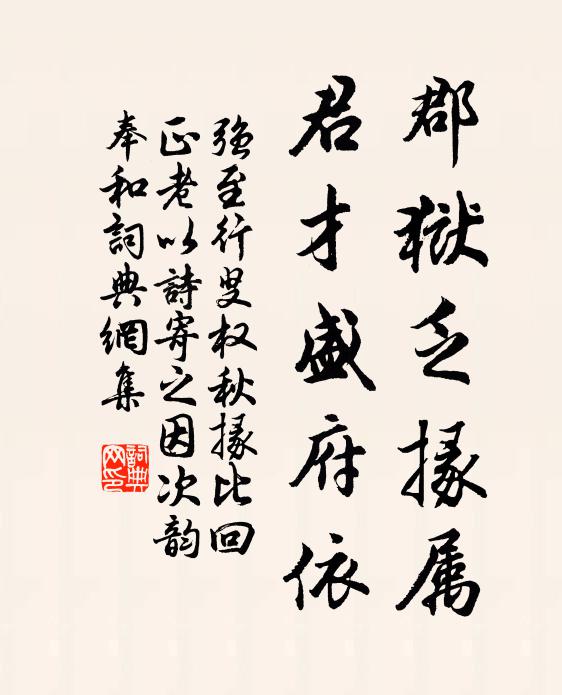 郡獄乏掾属
君才盛府依
強至行叟权秋掾比回
正老以詩寄之因次韵
奉和詞典網集
詞典
网印